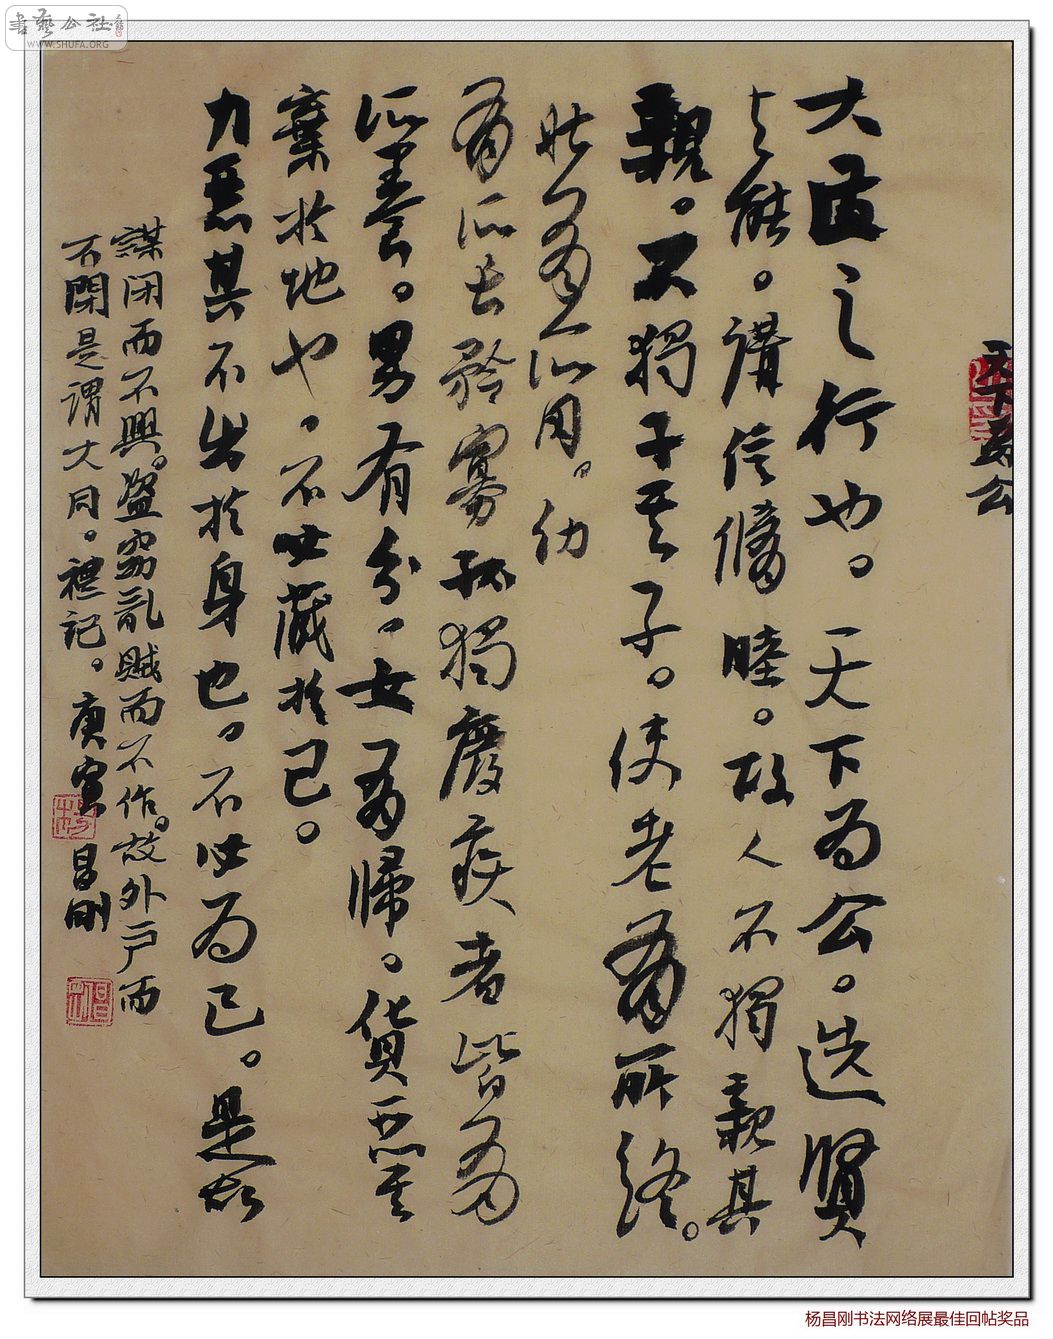 書藝公社
WWW.SHUFA.ORG
天下为公
大道之行也。天下为公。选贤
与能。講信脩睦。故人不獨親其
親。不獨子其子。使老有所终。
壮有所用。幼
有所长矜寡孤獨廢疾者皆有
所養。男有分、女有歸。貨惡其
棄於地也、不必藏於己。
力惡其不出於身也、不必为己。是故
謀闭而不興。盗窃亂賊而不作。故外户而
不閉是謂大同。禮記。庚寅 昌刚
杨昌刚书法网络展最佳回帖奖品